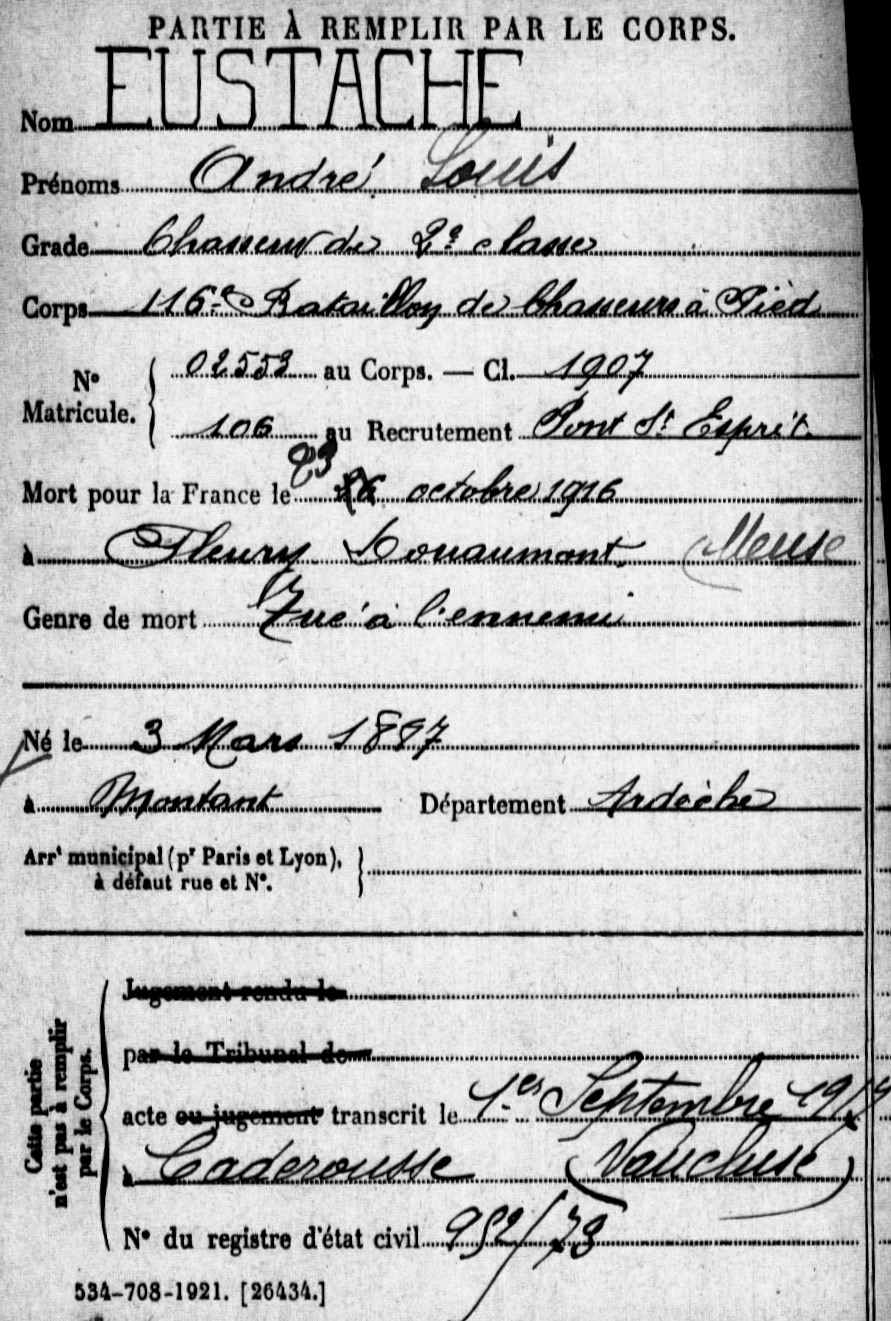 PARTIE À REMPLIR PAR LE CORPS.
Nom EUSTACHE
Prénoms André Louis
Grade Chasseur de 2e classe
Corps 116e Bataillon de Chasseurs à Pied
No Matricule. { 02553 au Corps. — Cl. 1907
106 au Recrutement Pont St Esprit
Mort pour la France le 23 octobre 1916
à Fleury Douaumont (Meuse
Genre de mort Tué à l'ennemi
Né le 3 Mars 1887
à Montant Département Ardèche
Arrt municipal (pr Paris et Lyon), }
à défaut rue et No.
Cette partie n'est pas à remplir par le Corps. {
Jugement rendu le
par le Tribunal de
acte ou jugement transcrit le 1er Septembre
à Caderousse (Vaucluse)
No du registre d'état civil 952/73
534-708-1921. [26434.]